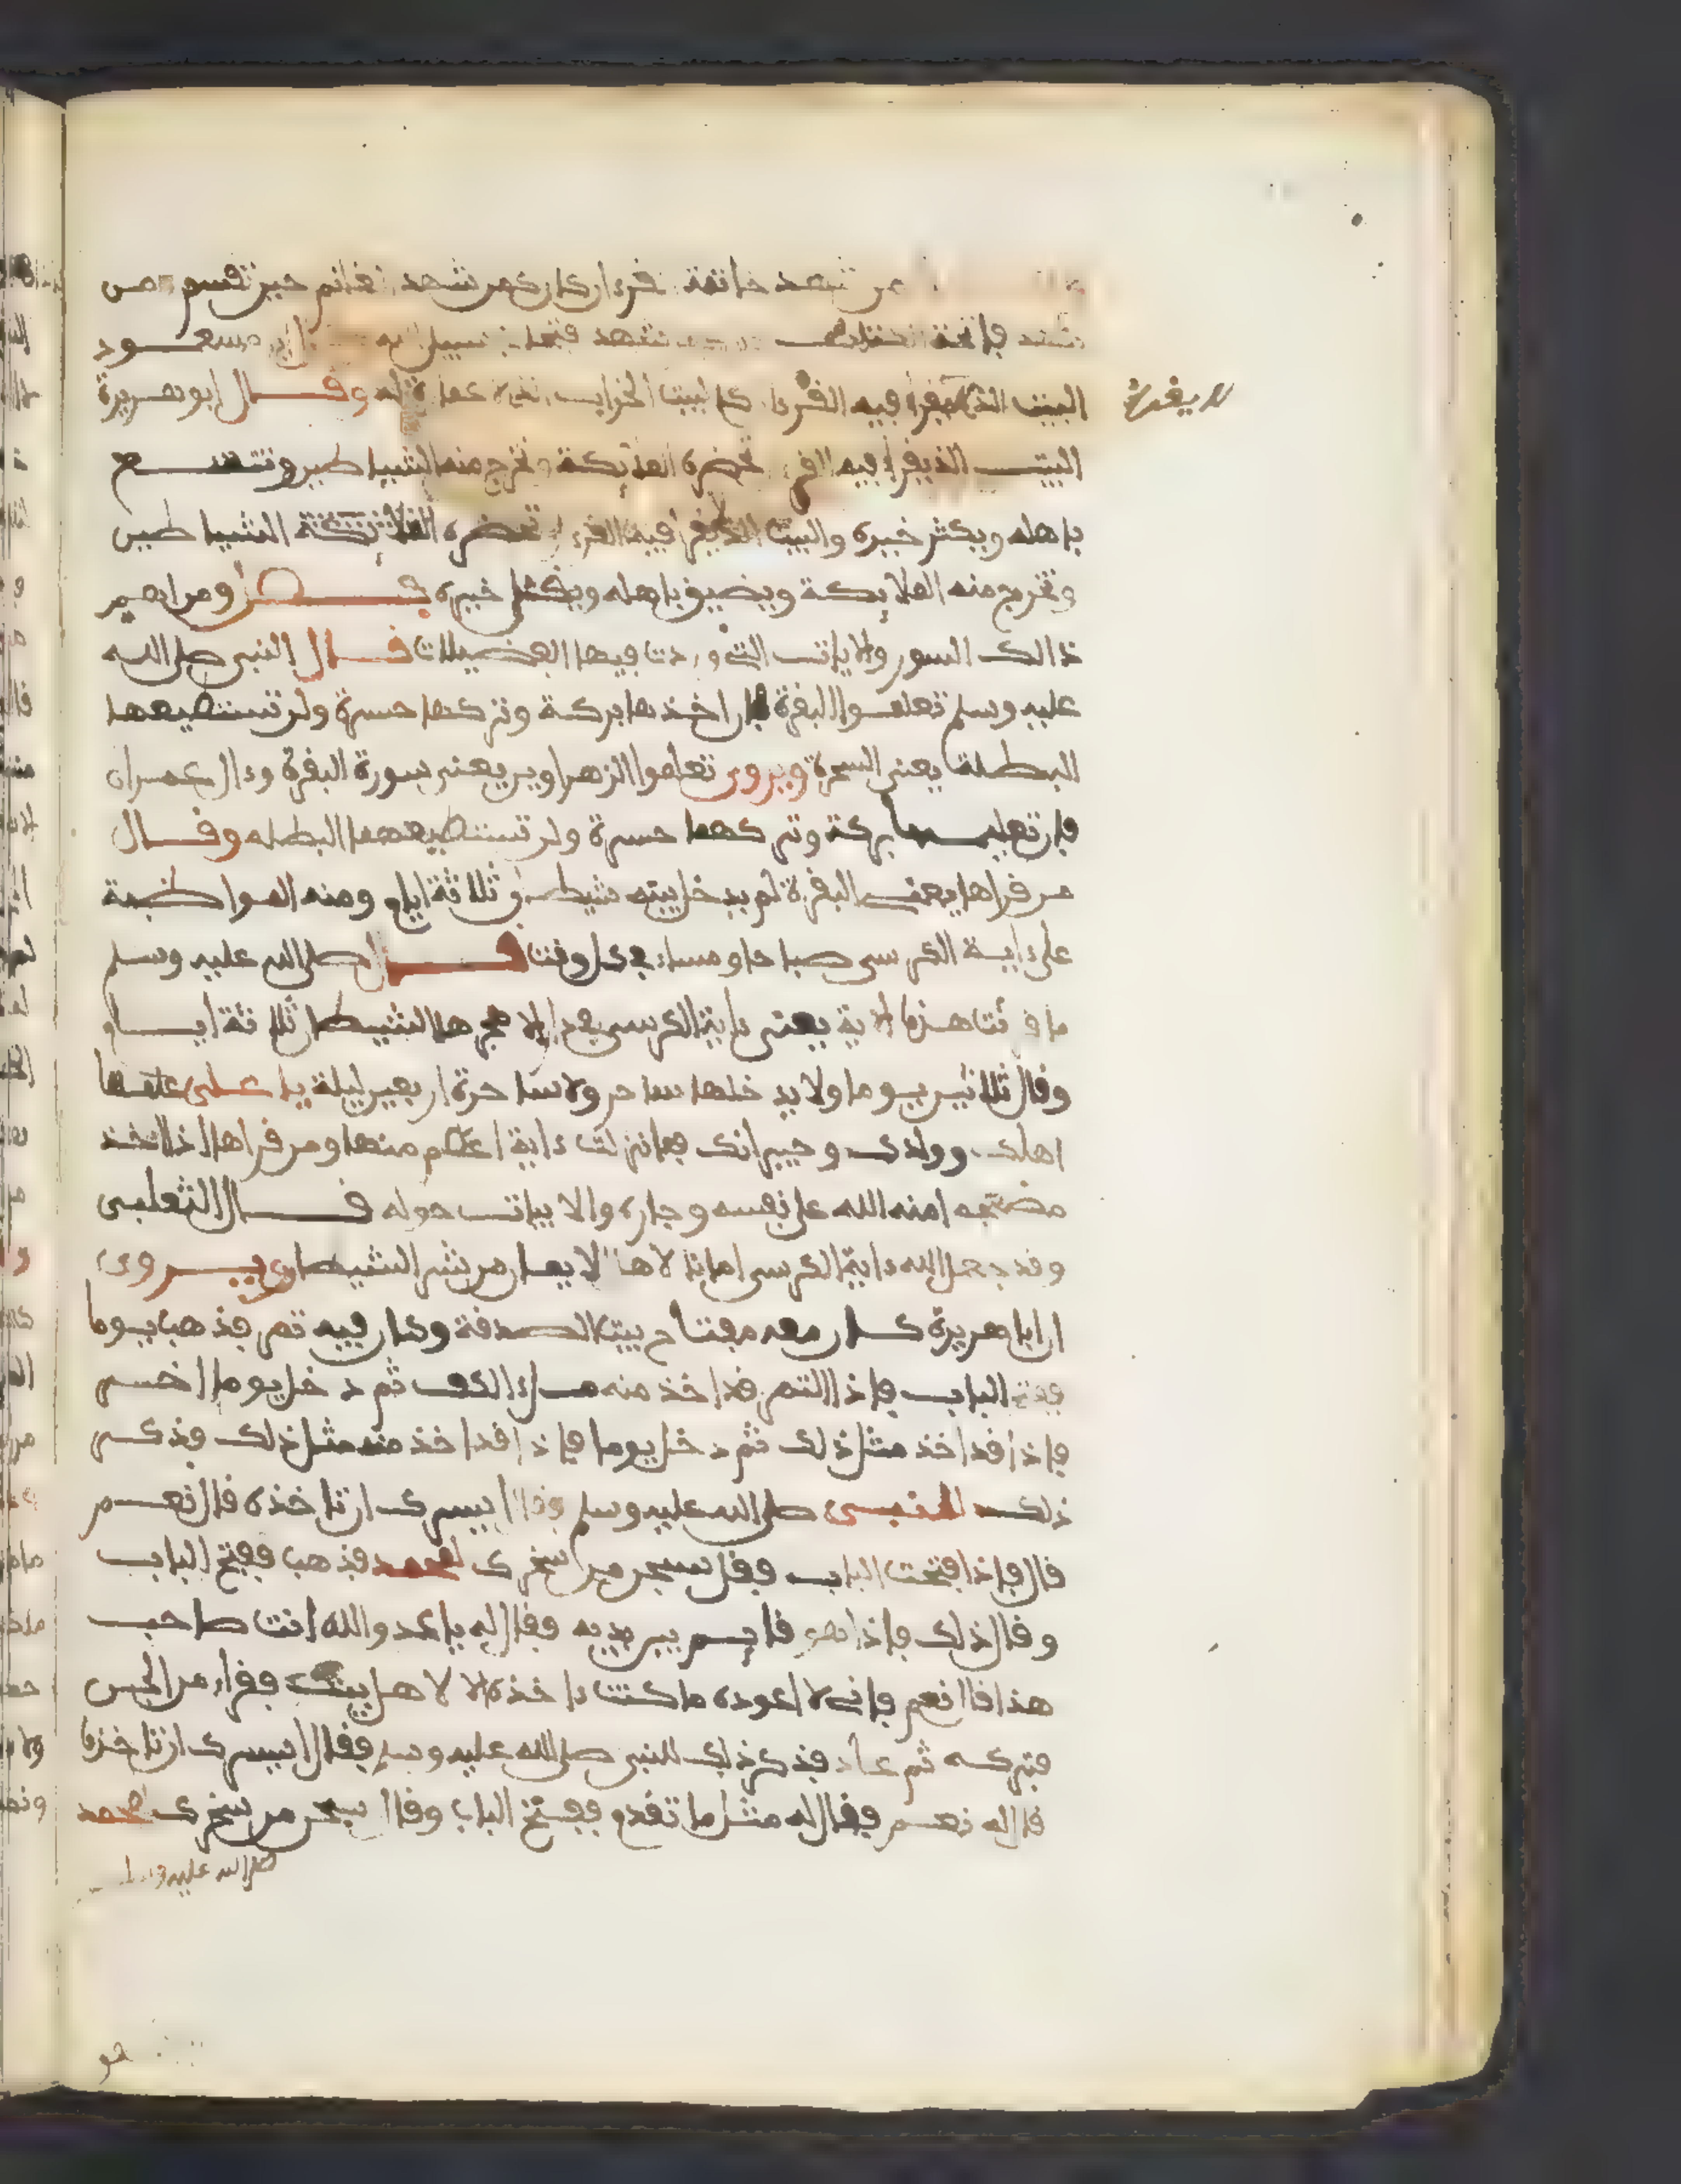 من شهد خاتمة القرءان كان كمن شهد الغنائم حين تقسم ومن
شهد فاتحة الكتاب كان كمن شهد فتحا في سبيل الله ابن مسعود
البيت الذي لا يقرأ فيه القرءان كالبيت الخراب الذي لا عمارة له وقال ابو هريرة
لا يقرأ
البيت الذي يقرأ فيه القرءان تحضره الملايكة وتخرج منه الشياطين ويتسع
باهله ويكثر خيره والبيت الذي لا يقرأ فيه القرءان تحضره الشياطين
وتخرج منه الملايكة ويضيق باهله ويقل خيره ومن اهم
ذالك السور والايات التي وردت فيها الفضيلات قال النبي صلى الله
عليه وسلم تعلموا البقرة فان اخذها بركة وتركها حسرة ولن تستطيعها
البطلة يعني السحرة ويروى تعلموا الزهراوين يعني سورة البقرة وءال عمران
فان تعليمهما بركة وتركهما حسرة ولن تستطيعهما البطله وقال
من قراها يعني البقرة لم يدخل بيته شيطان ثلاثة ايام ومنه المواظبة
على ءاية الكرسي صباحا ومساء في كل وقت قال صلى الله عليه وسلم
ما قرئت هذه الاية يعني ءاية الكرسي في دار الا هجرها الشيطان ثلاثة ايام
وقال ثلاثين يوما ولا يدخلها ساحر ولا ساحرة اربعين ليلة يا على علمها
اهلك وولدك وجيرانك فما نزلت ءاية اعظم منها ومن قراها اذا اخذ
مضجعه امنه الله على نفسه وجاره والابيات حوله قال الثعلبي
وقد جعل الله ءاية الكرسي امانا لاهل الايمان من شر الشيطان ويروى
ان ابا هريرة كان معه مفتاح بيت الصدقة وكان فيه تمر فذهب يوما
ففتح الباب فاذا التمر قد اخذ منه ملء الكف ثم دخل يوما اخر
فاذا قد اخذ مثل ذلك ثم دخل يوما فاذا قد اخذ منه مثل ذلك فذكر
ذلك للنبي صلى الله عليه وسلم فقال ايسرك ان تاخذه قال نعم
قال فاذا فتحت الباب فقل سبحن من سخرك لمحمد فذهب ففتح الباب
وقال ذلك فاذا هو قايم بين يديه فقال له يا عدو الله انت صاحب
هذا قال نعم فاني لا اعوده ما كنت ءاخذه الا لاهل بيت فقراء من الجن
فتركه ثم عاد فذكر ذلك للنبي صلى الله عليه وسلم فقال ايسرك ان تاخذه
قال له نعم فقال له مثل ما تقدم ففتح الباب وقال سبحن من سخرك لمحمد
صلى الله عليه وسلم
هو